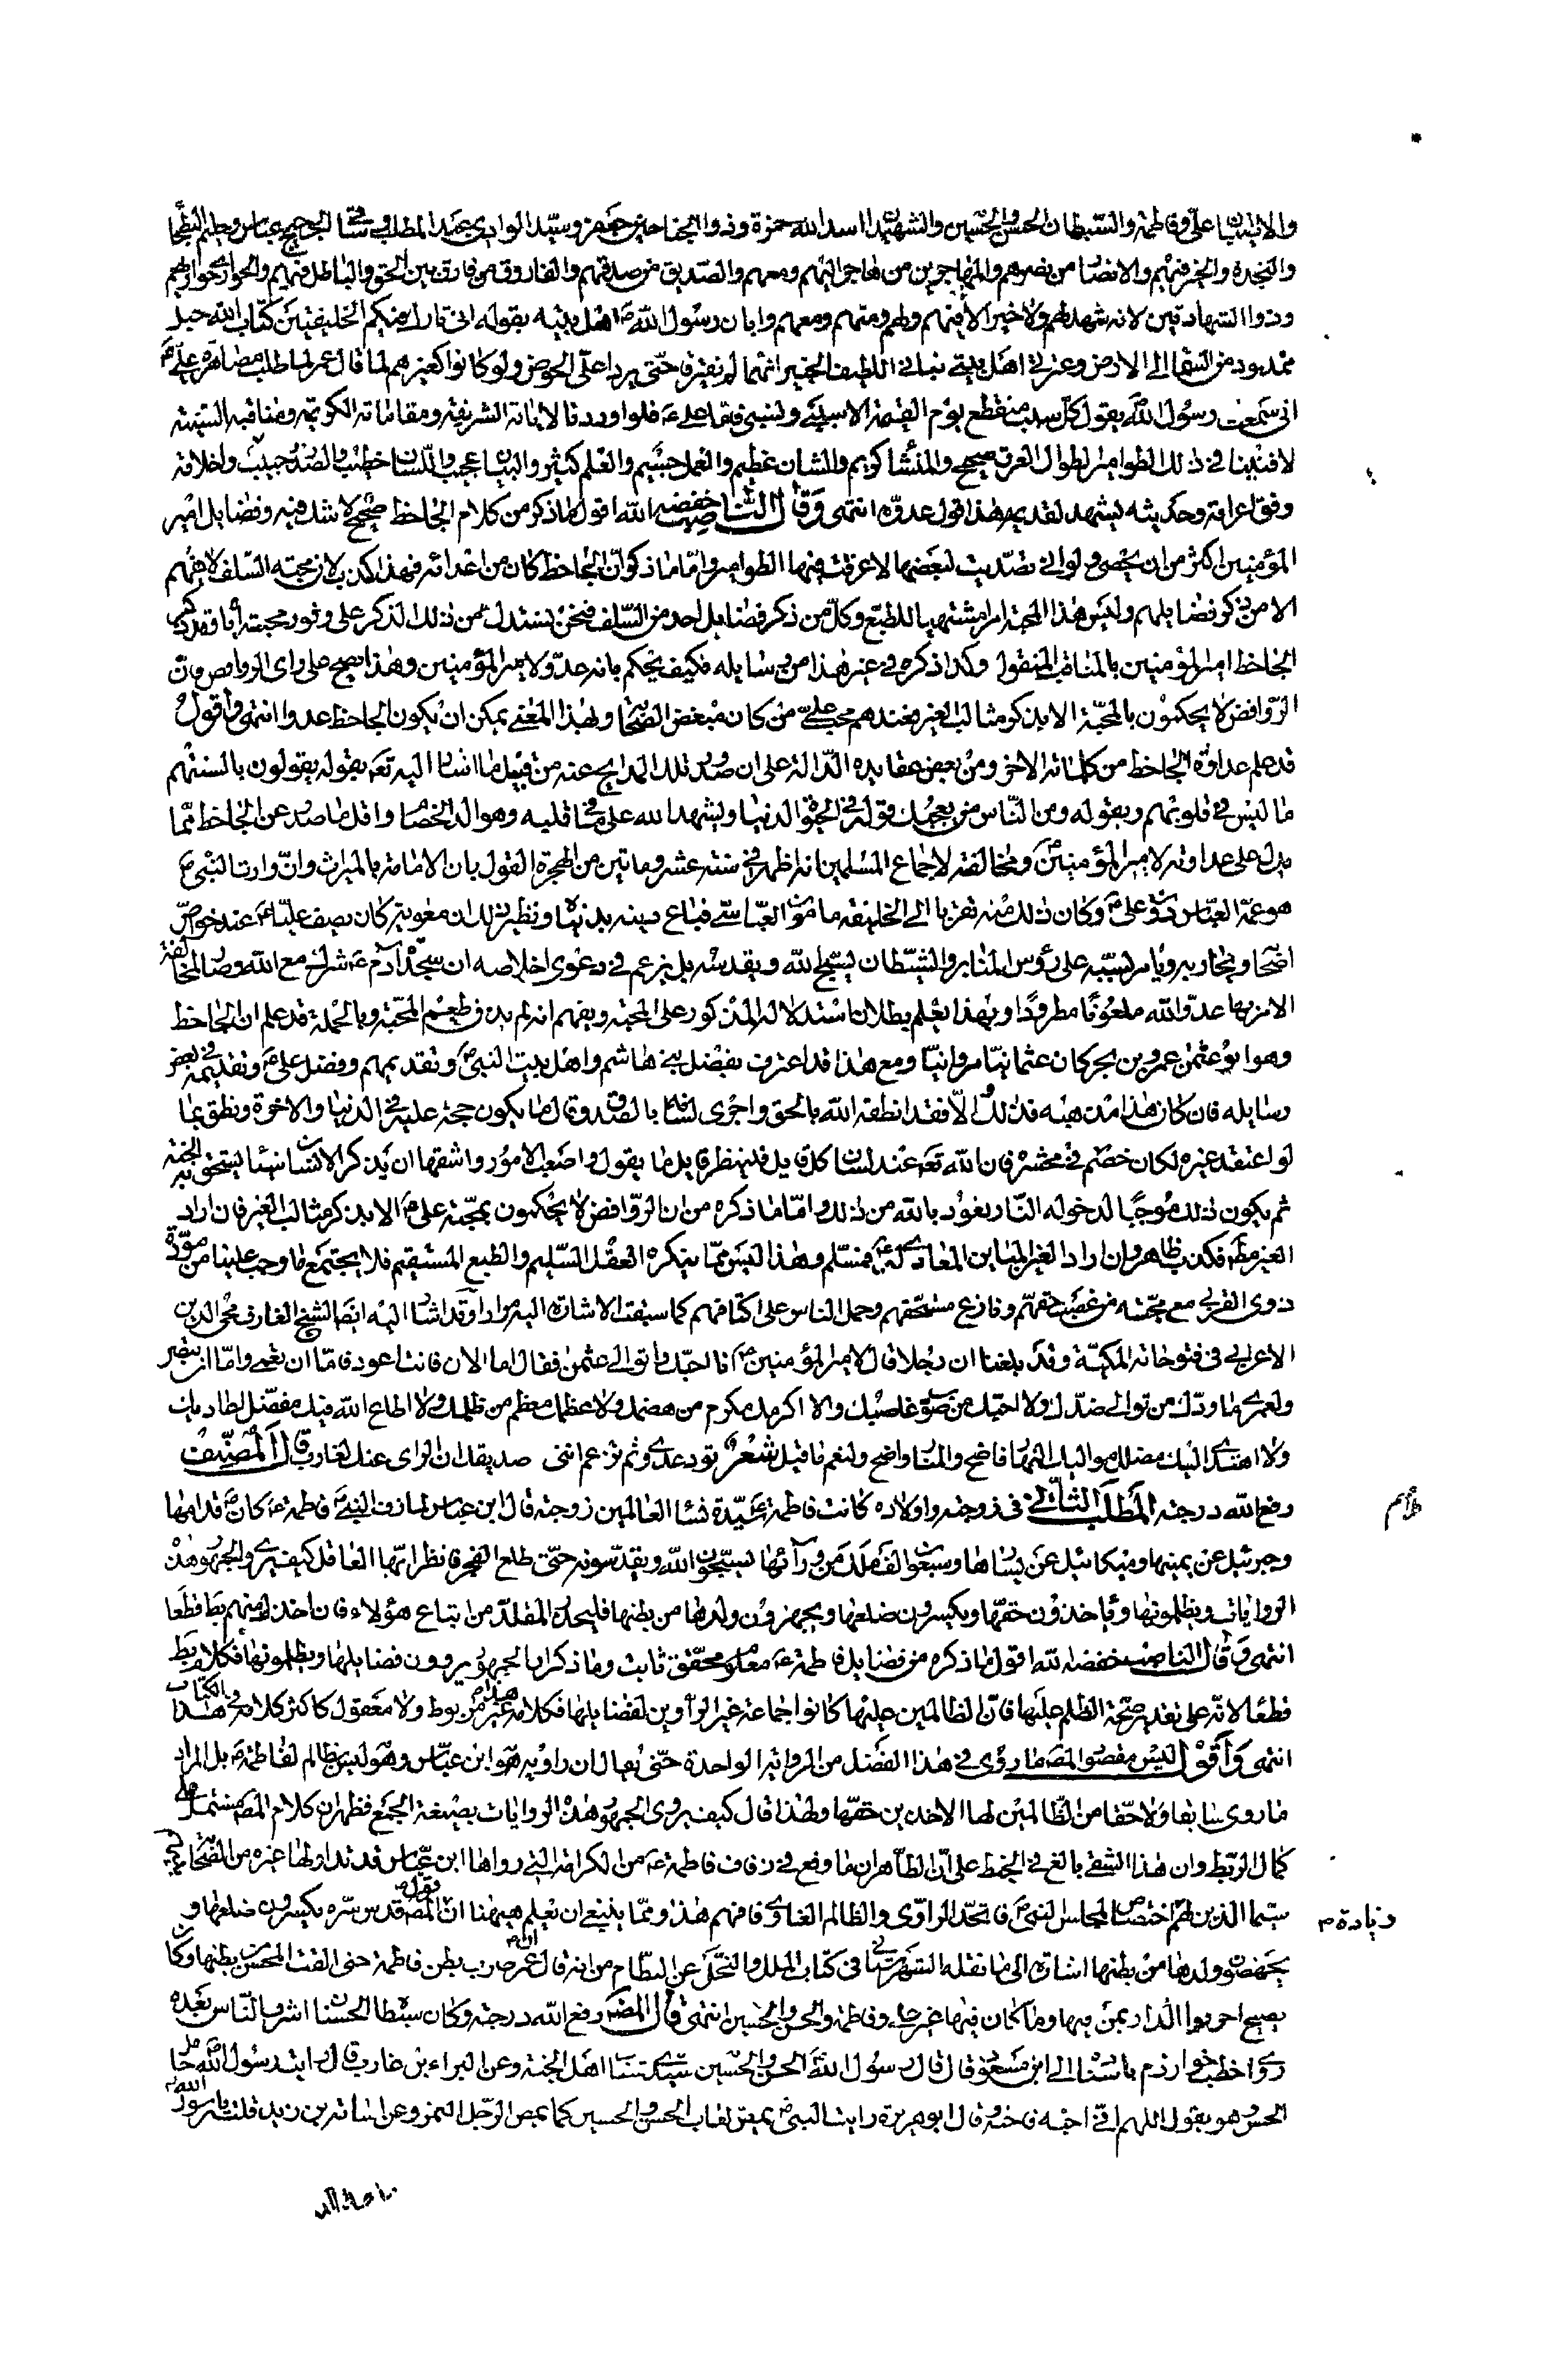 والاطيبان علي وفاطمة والسبطان الحسن والحسين والشهيدان اسد الله حمزة وذو الجناحين جعفر وسيد الوادي عبد المطلب وساقي الحجيج عباس وحليم البطحاء
والنجدة والخير فيهم والانصار من نصرهم والمهاجرين من هاجر اليهم ومعهم والصديق من صدقهم والفاروق من فارق بين الحق والباطل فيهم والحواري حواريهم
وذو الشهادتين لانه شهد لهم ولا خير الا فيهم ولهم ومنهم ومعهم وابان رسول الله ص اهل بيته بقوله اني تارك فيكم الخليفتين كتاب الله حبل
ممدود من السماء الى الارض وعترتي اهل بيتي نباني اللطيف الخبير انهما لن يفترقا حتى يردا علي الحوض ولو كانوا كغيرهم لما قال عمر لما طلب مصاهرة علي ع
اني سمعت رسول الله ص يقول كل سبب منقطع يوم القيمة الا سببي ونسبي فاما علي ع فلو اوردنا لاياته الشريفة ومقاماته الكريمة ومناقبه السنية
لافنينا في ذلك الطوامير الطوال العرق صحيح والمنشأ كريم والشان عظيم والعمل جسيم والعلم كثير والبيان عجيب واللسان خطيب والصدر رحيب واخلاقه
وفق اعراقه وحديثه يشهد لقديمه هذا قول عدوه انتهى وقال الناصب خفضه الله اقول ما ذكر من كلام الجاحظ صحيح لا شك فيه وفضايل امير
المؤمنين اكثر من ان يحصى ولو اني تصديت لبعضها لاغرقت فيها الطوامير واما ما ذكر ان الجاحظ كان من اعدائه فهذا كذب لان محبة السلف لا يفهم
الا من ذكر فضايلهم وليس هذا المحبة امرا مشتهيا للطبع وكل من ذكر فضايل احد من السلف فنحن نستدل من ذلك الذكر على وفور محبته اياه وقد ذكر
الجاحظ امير المؤمنين بالمناقب المنقولة وكذا ذكره في غير هذا من رسايله فكيف يحكم بانه عدو لامير المؤمنين وهذا يصح على راى الروافض فان
الروافض لا يحكمون بالمحبة الا بذكر مثالب الغير فعندهم محب علي من كان مبغض الصحابة ولهذا المعنى يمكن ان يكون الجاحظ عدوا انتهى واقول
قد علم عداوة الجاحظ من كلماته الاخر ومن بعض عقايده الدالة على ان صدور تلك المدايح عنه من قبيل ما اشار اليه تع بقوله يقولون بالسنتهم
ما ليس في قلوبهم وبقوله ومن الناس من يعجبك قوله في الحيوة الدنيا ويشهد الله على ما في قلبه وهو الد الخصام واقل ما صدر عن الجاحظ مما
يدل على عداوته لامير المؤمنين ع ومخالفته لاجماع المسلمين انه اظهر في سنة عشر وماتين من الهجرة القول بان الامامة بالميراث وان وارث النبي ص
هو عمه العباس دون علي ع وكان ذلك منه تقربا الى الخليفة مامون العباسي فباع دينه بدنياه ونظير ذلك ان معوية كان يصف عليا ع عند خواص
اصحابه ويحاربه ويامر بسبه على رؤس المنابر والشيطان يسبح لله ويقدسه بل يزعم في دعوى اخلاصه ان سجدة ادم ع شرك مع الله وصار لمخالفة
الامر بها عدو الله ملعونا مطرودا وبهذا يعلم بطلان استدلاله المذكور على المحبة ويفهم انه لم يذق طعم المحبة وبالجملة قد علم ان الجاحظ
وهو ابو عثمن عمرو بن بحر كان عثمانيا مروانيا ومع هذا قد اعترف بفضل بني هاشم واهل بيت النبي ص وتقديمهم وفضل علي ع وتقديمه في بعض
رسايله فان كان هذا مذهبه فذلك والا فقد انطقه الله بالحق واجرى لسانه بالصدق وقال ما يكون حجة عليه في الدنيا والاخرة ونطق بما
لو اعتقد غيره لكان خصمه في محشره فان الله تع عند لسان كل قايل فلينظر قايل ما يقول واصعب الامور واشقها ان يذكر الانسان شيئا يستحق به الجنة
ثم يكون ذلك موجبا لدخوله النار نعوذ بالله من ذلك واما ما ذكره من ان الروافض لا يحكمون بمحبة علي ع الا بذكر مثالب الغير فان اراد
الغير مطلقا فكذب ظاهر وان اراد الغير المباين المعادي له ع فمسلم وهذا ليس مما ينكره العقل السليم والطبع المستقيم فلا يجتمع ما وجب علينا من مودة
ذوى القربى مع محبة من غصب حقهم ونازع مستحقهم وحمل الناس على اكتافهم كما سبقت الاشارة اليه مرارا وقد اشار اليه ايضا الشيخ العارف محيي الدين
الاعرابي في فتوحاته المكية وقد بلغنا ان رجلا قال لامير المؤمنين ع انا احبك واتوالى عثمن فقال اما الان فانت اعور فاما ان تعمى واما ان تبصر
ولعمري ما ودك من توالى ضدك ولا احبك من صوب غاصبك ولا اكرمك مكرم من هضمك ولا عظمك معظم من ظلمك ولا اطاع الله فيك مفضل اعاديك
ولا اهتدى اليك مضلل مواليك النهار فاضح والمنار واضح ولنعم ما قيل شعر تود عدوي ثم تزعم انني صديقك ان الراى عنك لعازب قال المصنف
رفع الله درجته المطلب الثاني في زوجته واولاده كانت فاطمة ع سيدة نساء العالمين زوجته قال ابن عباس لما زفت النبي ص فاطمة ع كان ص قدامها
وجبرئيل عن يمينها وميكائيل عن يسارها وسبعون الف ملك من ورآئها يسبحون الله ويقدسونه حتى طلع الفجر فانظر ايها العاقل كيف يروي الجمهور هذه
الروايات ويظلمونها وياخذون حقها ويكسرون ضلعها ويجهزون ولدها من بطنها فليحذر المقلد من اتباع هؤلاء فان اخذك منهم باطل قطعا
انتهى وقال الناصب خفضه الله اقول ما ذكره من فضايل فاطمة ع معلوم محقق ثابت وما ذكر ان الجمهور يروون فضايلها ويظلمونها فكلام باطل
قطعا لانه على تقدير صحة الظلم عليها فان الظالمين عليها كانوا جماعة غير الراوين لفضايلها فكلامه هذا غير مربوط ولا معقول كاكثر كلامه في هذا الكتاب
انتهى واقول ليس مقصود المصنف ما روى في هذا الفصل من الرواية الواحدة حتى يقال ان راويه هو ابن عباس وهو ليس بظالم لفاطمة ع بل المراد
ما روى سابقا ولاحقا من الظالمين لها الاخذين حقها ولهذا قال كيف يروى الجمهور هذه الروايات بصيغة الجمع فظهر ان كلام المص مشتمل على
كمال الربط وان هذا الشقي بالغ في الخبط على ان الظاهر ان ما وقع في زفاف فاطمة ع من الكرامة التي رواها ابن عباس قد تداولها غيره من الصحابة
سيما الذين لهم اختصاص لمجالس النبي ص فاتحد الراوى والظالم الغاوي فافهم هذا ومما ينبغي ان يعلم ههنا ان بقول المص قدس سره يكسرون ضلعها و
يجهضون ولدها من بطنها اشارة الى ما نقله الشهرستاني في كتاب الملل والنحل عن النظام من انه قال ان عمر ضرب بطن فاطمة حتى القت المحسن من بطنها وكان
يصيح احرقوا الدار بمن فيها وما كان فيها غير علي وفاطمة والحسن والحسين انتهى قال المص رفع الله درجته وكان سبطاه الحسنان اشرف الناس بعده
روى اخطب خوارزم باسناده الى ابن مسعود قال قال رسول الله ص الحسن والحسين سيدا شباب اهل الجنة وعن البراء بن عازب قال رايت رسول الله ص حاملا
الحسن وهو يقول اللهم اني احبه فاحبه وقال ابو هريرة رايت النبي ص يمص لعاب الحسن والحسين كما يمص الرجل التمرة وعن اسامة بن زيد قلت يا رسول الله
وزيادة ص